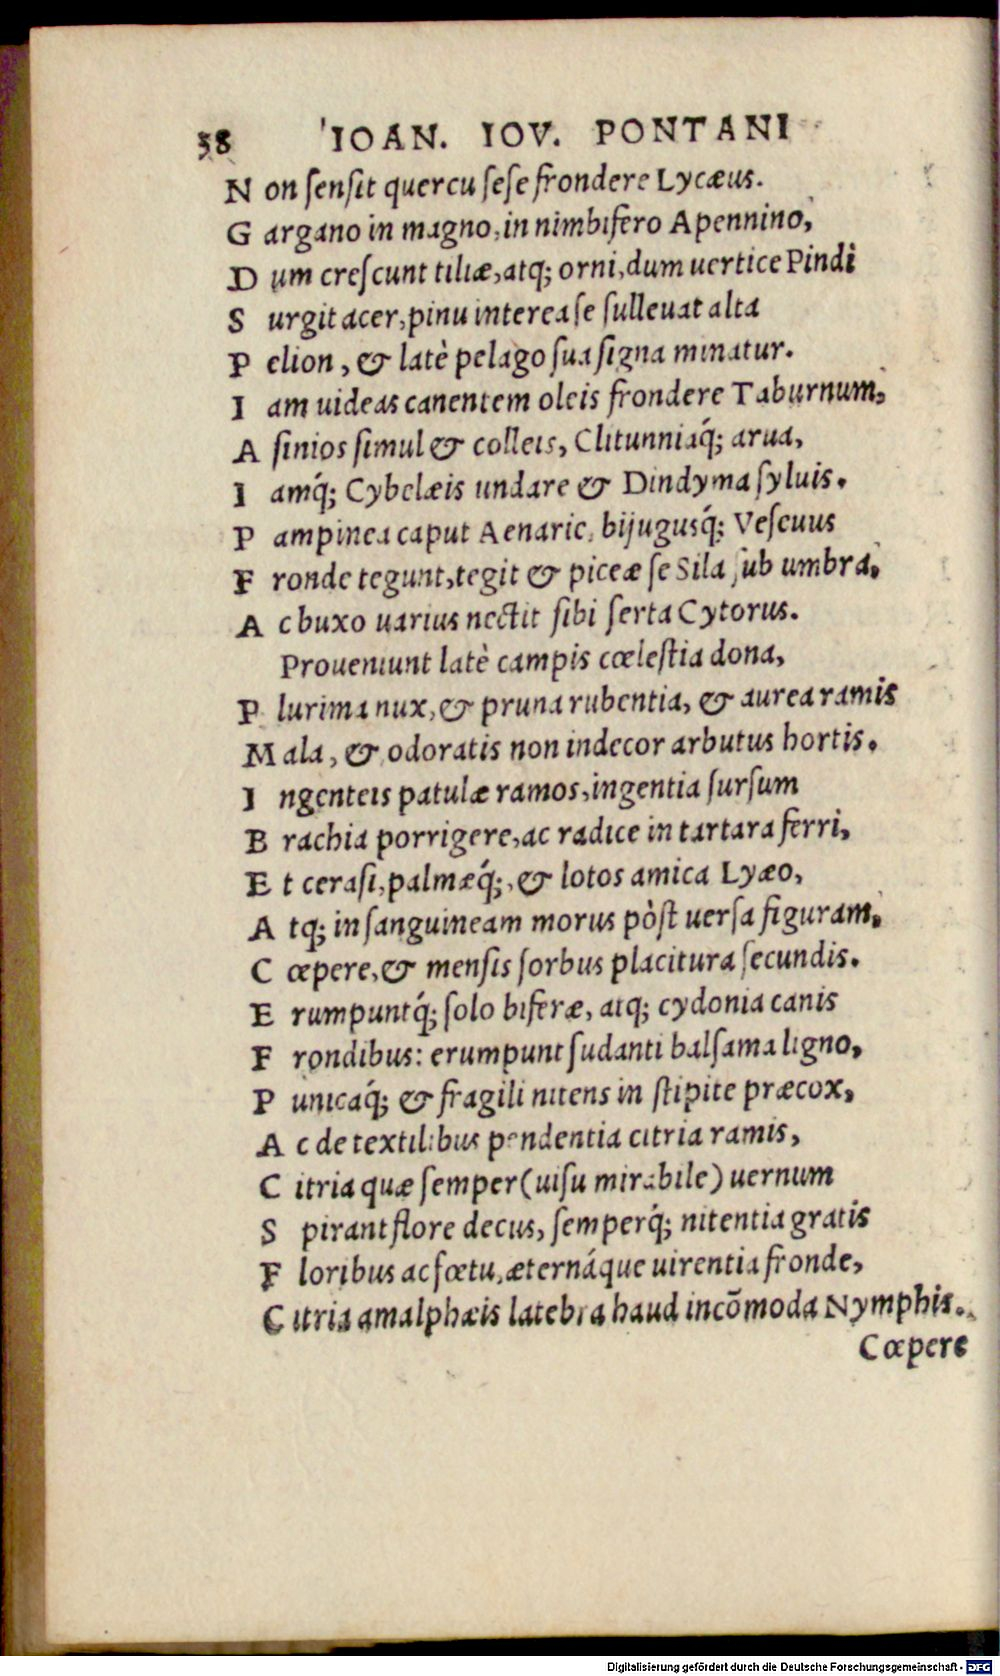 38 IOAN. IOV. PONTANI
N on ſenſit quercu ſeſe frondere Lycæus.
G argano in magno, in nimbifero Apennino,
D um creſcunt tiliæ, atq; orni, dum uertice Pindi
S urgit acer, pinu interea ſe ſulleuat alta
P elion, & latè pelago ſua ſigna minatur.
I am uideas canentem oleis frondere Taburnum,
A ſinios ſimul & colleis, Clitunniaq́; arua,
I amq́; Cybelæis undare & Dindyma ſyluis.
P ampinea caput Aenarie, bijugusq́; Veſeuus
F ronde tegunt, tegit & piceæ ſe Sila ſub umbra,
A c buxo uarius nectit ſibi ſerta Cytorus.
Proueniunt latè campis cœleſtia dona,
P lurima nux, & pruna rubentia, & aurea ramis
M ala, & odoratis non indecor arbutus hortis.
I ngenteis patulæ ramos, ingentia ſurſum
B rachia porrigere, ac radice in tartara ferri,
E t ceraſi, palmæq́;, & lotos amica Lyæo,
A tq; in ſanguineam morus pòſt uerſa figuram,
C œpere, & menſis ſorbus placitura ſecundis.
E rumpuntq́; ſolo biferæ, atq; cydonia canis
F rondibus: erumpunt ſudanti balſama ligno,
P unicaq́; & fragili nitens in ſtipite præcox,
A c de textilibus pendentia citria ramis,
C itria quæ ſemper (uiſu mirabile) uernum
S pirant flore decus, ſemperq́; nitentia gratis
F loribus ac fœtu, æternáque uirentia fronde,
C itria amalphæis latebra haud incõmoda Nymphis.
Cœpere
Digitalisierung gefördert durch die Deutsche Forschungsgemeinschaft - DFG